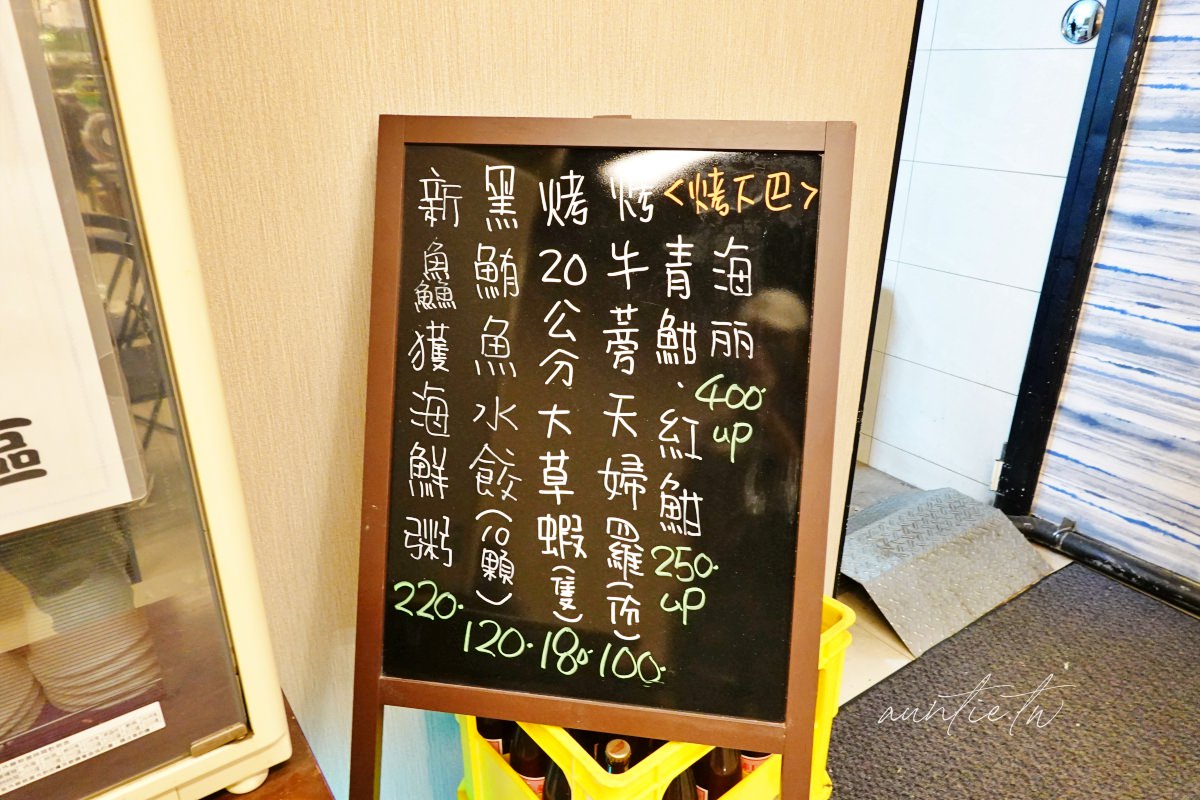 <烤下巴>
海丽 400. up
青魽.紅魽 250. up
烤牛蒡天婦羅(份) 100.
烤20公分大草蝦(隻) 180
黑鮪魚水餃(10顆) 120.
新鱻獲海鮮粥 220.
區
auntie.tw